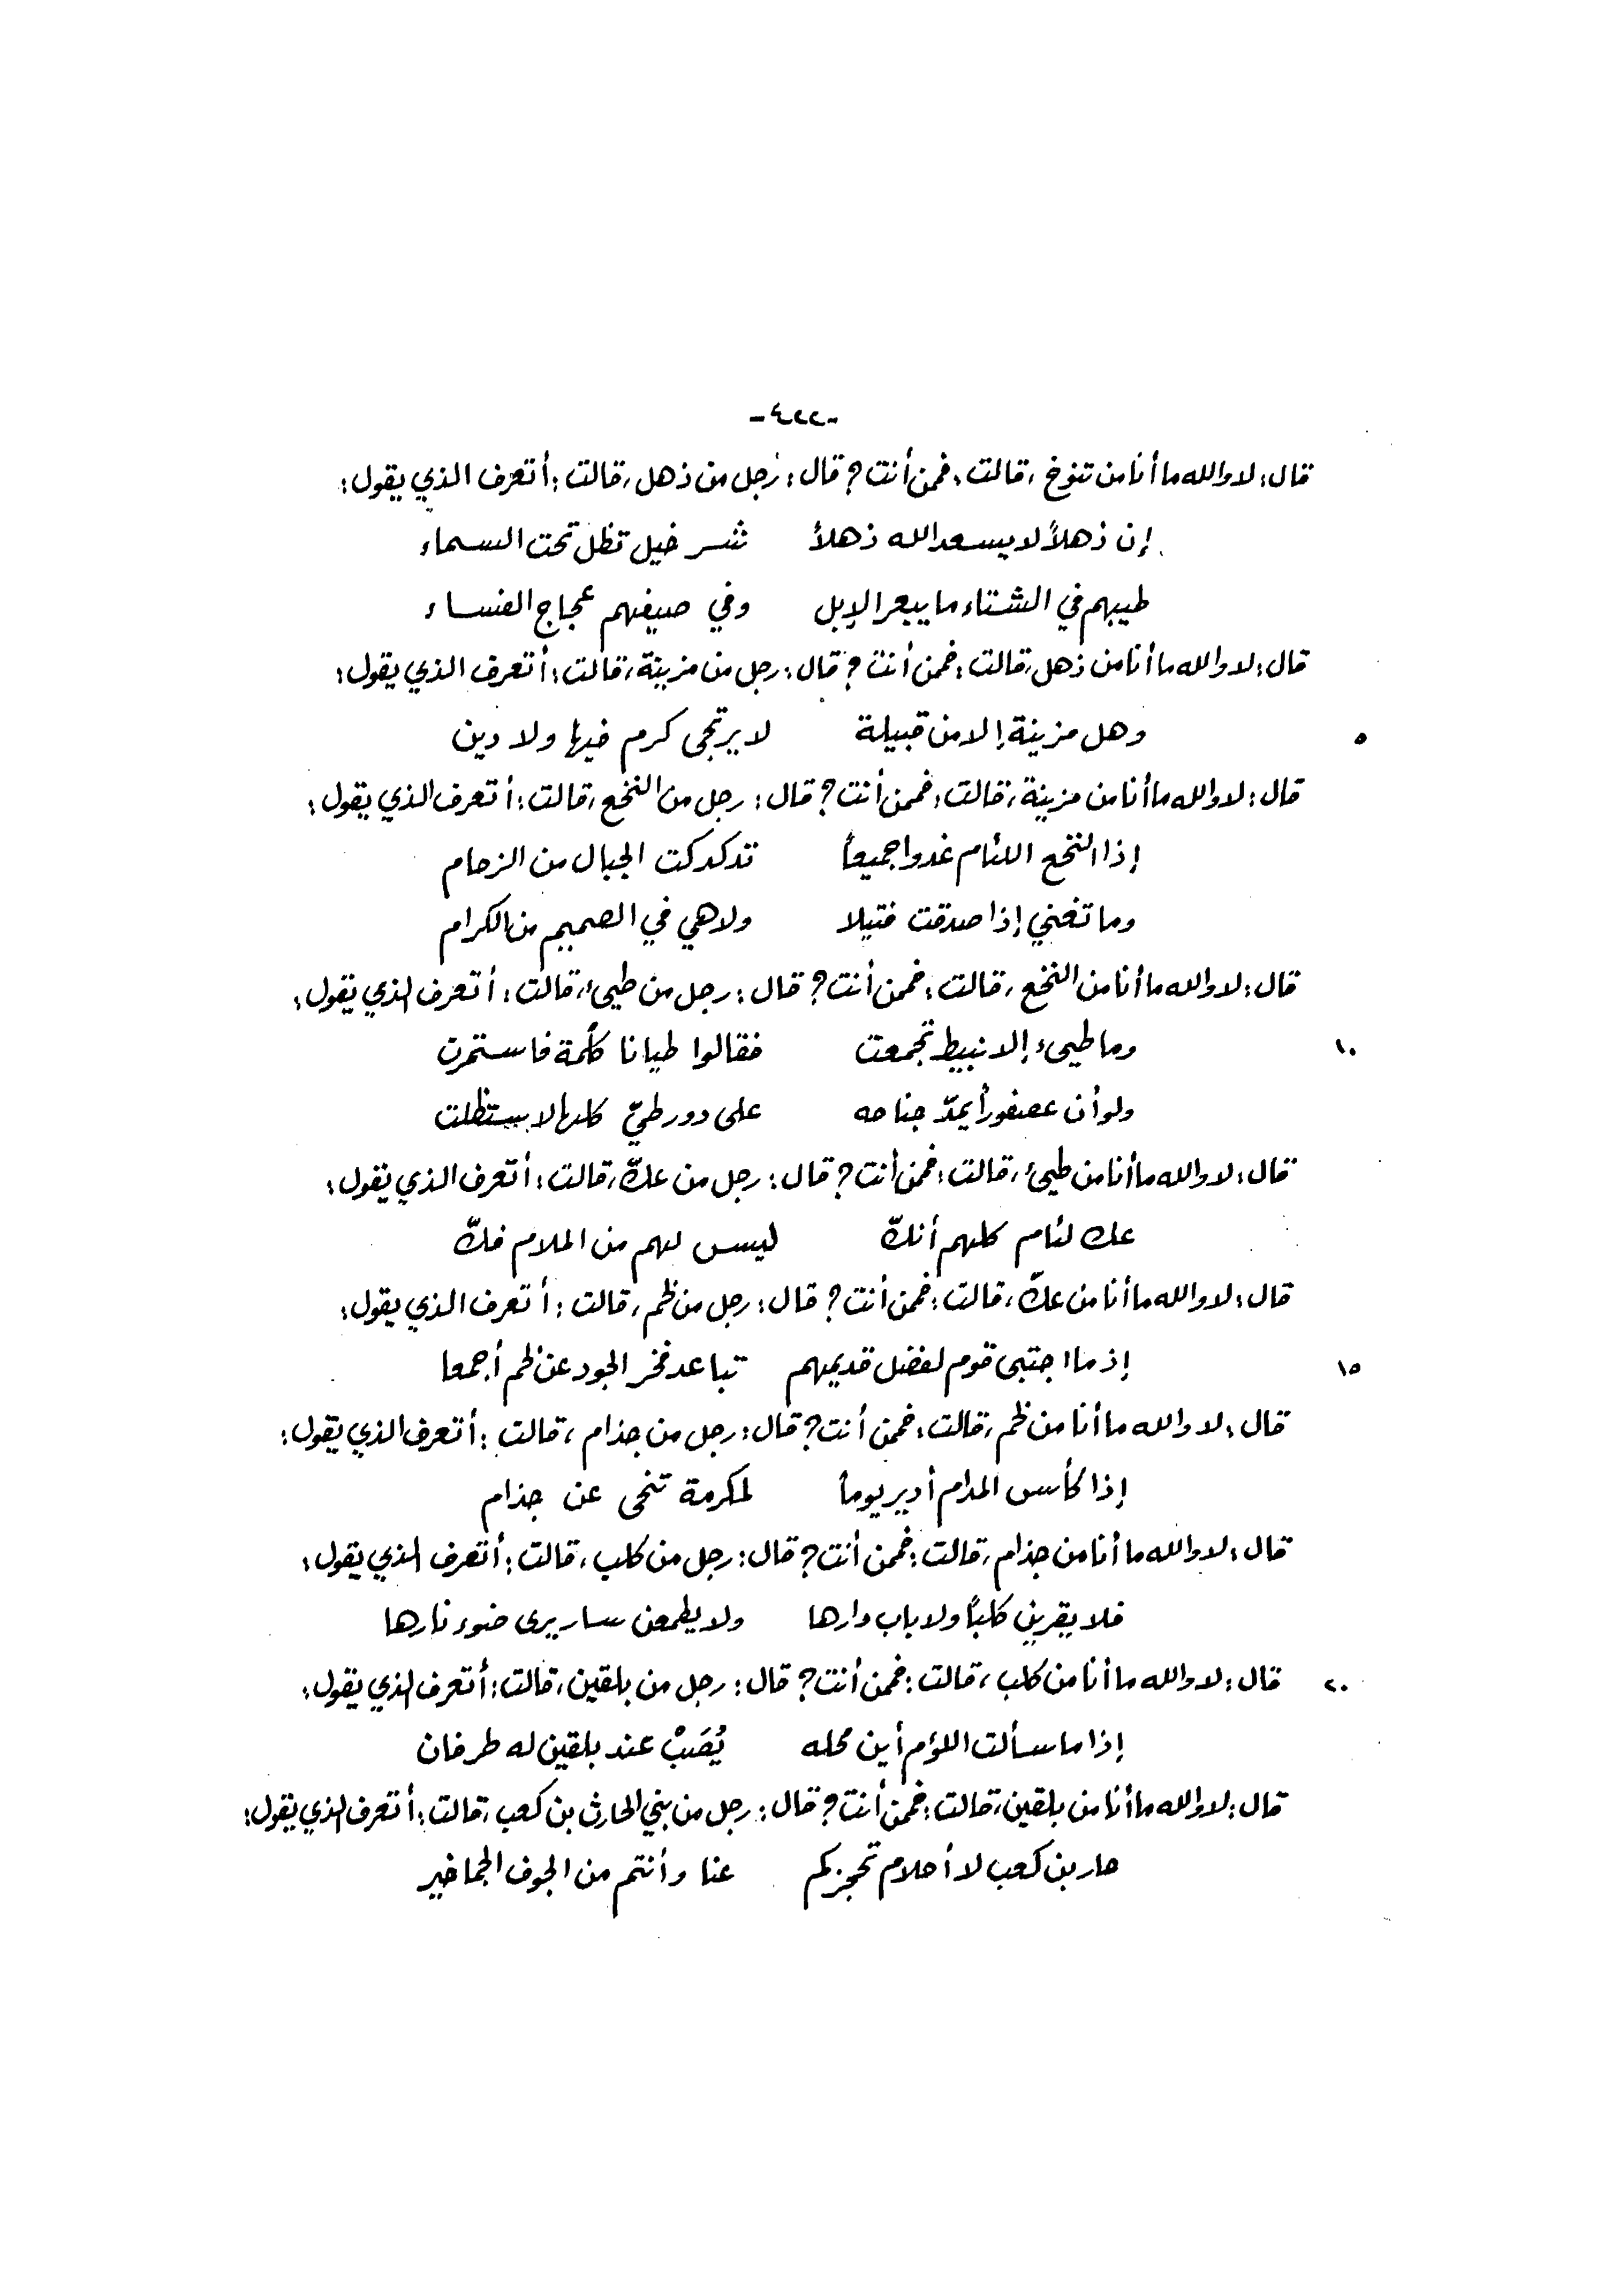 -٤٢٢-
قال: لا والله ما أنا من تنوخ، قالت: فمن أنت؟ قال: رجل من ذهل، قالت: أتعرف الذي يقول:
إن ذهلاً لا يسعد الله ذهلاً شر خيل تظل تحت السماء
طيبهم في الشتاء ما يبعر الإبل وفي صيفهم عجاج الفساء
قال: لا والله ما أنا من ذهل، قالت: فمن أنت؟ قال: رجل من مزينة، قالت: أتعرف الذي يقول:
٥ وهل مزينة إلا من قبيلة لا يرتجى كرم فيها ولا دين
قال: لا والله ما أنا من مزينة، قالت: فمن أنت؟ قال: رجل من النخع، قالت: أتعرف الذي يقول:
إذا النخع اللئام غدوا جميعاً تدكدكت الجبال من الزحام
وما تغني إذا صدقت فتيلا ولا هي في الصميم من الكرام
قال: لا والله ما أنا من النخع، قالت: فمن أنت؟ قال: رجل من طيىء، قالت: أتعرف الذي يقول:
١٠ وما طيىء إلا نبيط تجمعت فقالوا طيانا كلمة فاستمرت
ولو أن عصفوراً يمدّ جناحه على دور طيّ كلها لاستظلت
قال: لا والله ما أنا من طيئ، قالت: فمن أنت؟ قال: رجل من عكّ، قالت: أتعرف الذي يقول:
عك لئام كلهم أنكّ ليس لهم من الملام فكّ
قال: لا والله ما أنا من عكّ، قالت: فمن أنت؟ قال: رجل من لخم، قالت: أتعرف الذي يقول:
١٥ إذ ما اجتبى قوم لفضل قديمهم تباعد فخر الجود عن لخم أجمعا
قال: لا والله ما أنا من لخم، قالت: فمن أنت؟ قال: رجل من جذام، قالت: أتعرف الذي يقول:
إذا كأس المدام أدير يوماً لمكرمة تنحى عن جذام
قال: لا والله ما أنا من جذام، قالت: فممن أنت؟ قال: رجل من كلب، قالت: أتعرف الذي يقول:
فلا يقربن كلباً ولا باب دارها ولا يطمعن سار يرى ضوء نارها
٢٠ قال: لا والله ما أنا من كلب، قالت: فممن أنت؟ قال: رجل من بلقين، قالت: أتعرف الذي يقول:
إذا ما سألت اللؤم أين محله يُصَبْ عند بلقين له طرفان
قال: لا والله ما أنا من بلقين، قالت: فممن أنت؟ قال: رجل من بني الحارث بن كعب، قالت: أتعرف الذي يقول:
حار بن كعب لا أحلام تحجزكم عنا وأنتم من الجوف الجماخير